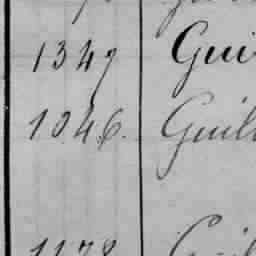 1349 Gui
1046. Guil
1178